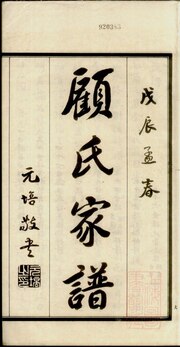 920383
戊辰孟春
顧氏家譜
元培敬書